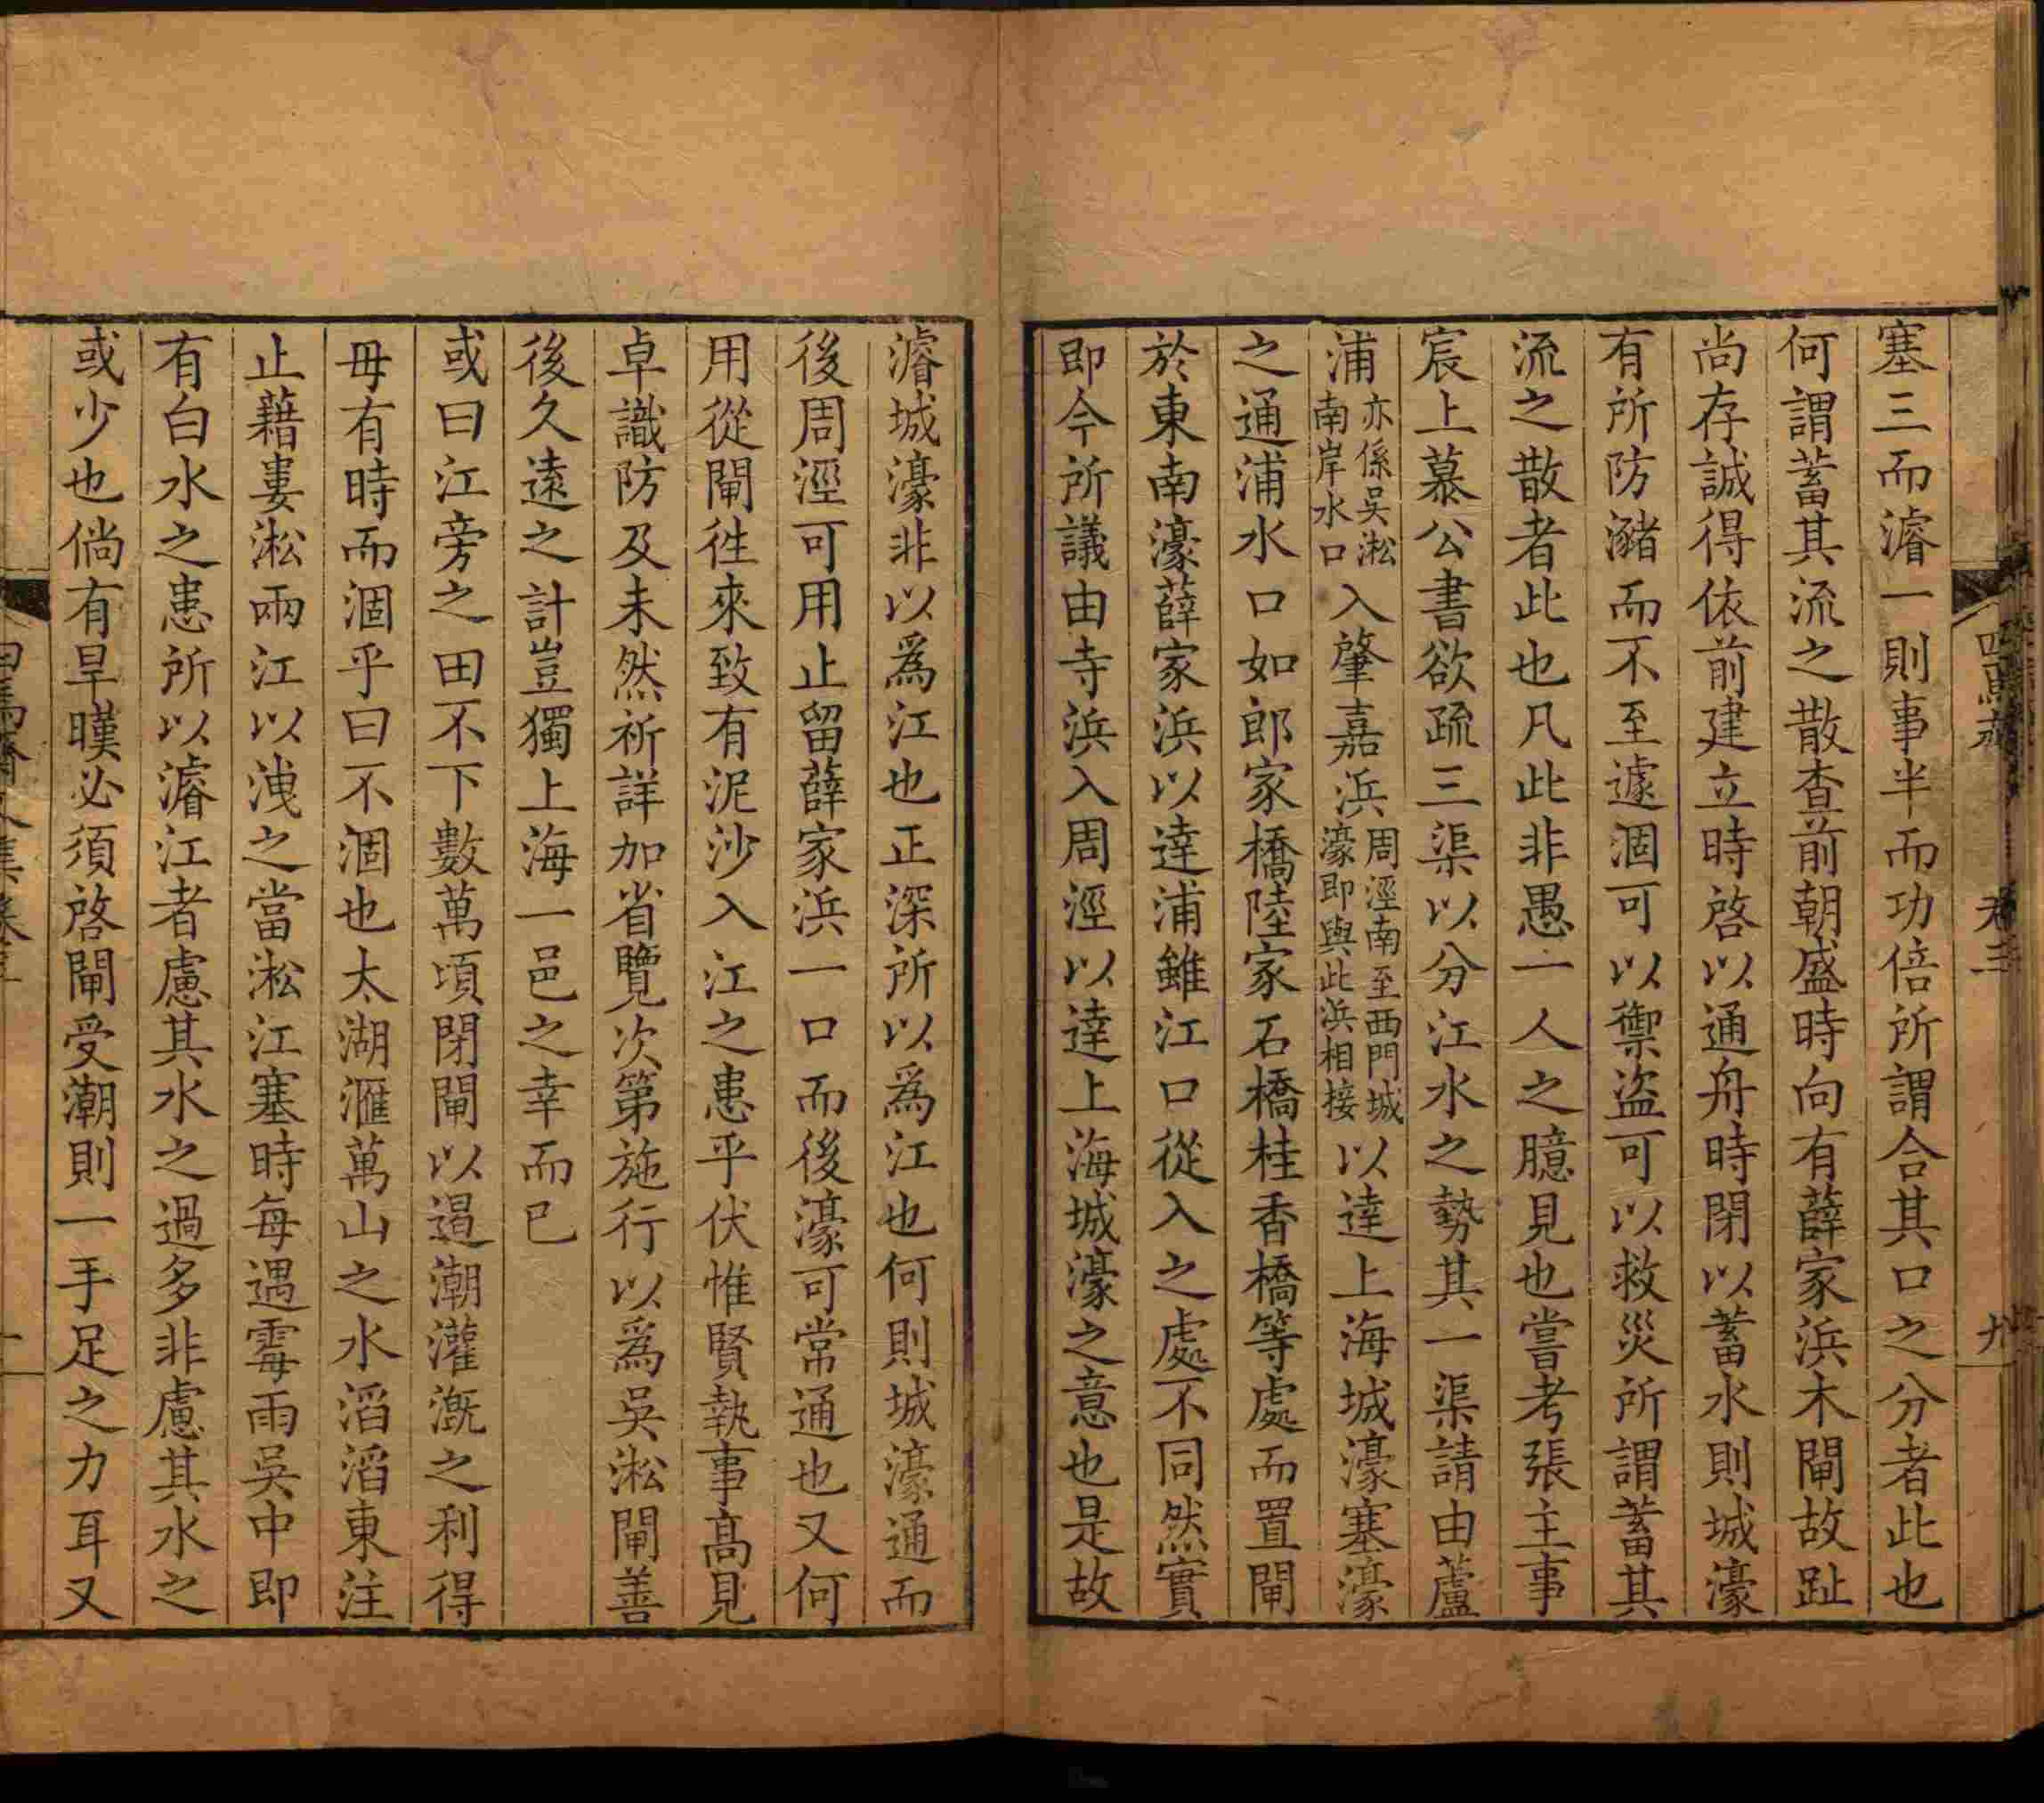 塞三而濬一則事半而功倍所謂合其口之分者此也
何謂蓄其流之散查前朝盛時向有薛家浜木閘故趾
尚存誠得依前建立時啓以通舟時閉以蓄水則城濠
有所防瀦而不至遽涸可以禦盜可以救災所謂蓄其
流之散者此也凡此非愚一人之臆見也嘗考張主事
宸上慕公書欲疏三渠以分江水之勢其一渠請由蘆
浦亦係吳淞南岸水口入肇嘉浜周涇南至西門城濠即與此浜相接以達上海城濠塞濠
之通浦水口如郎家橋陸家石橋桂香橋等處而置閘
於東南濠薛家浜以達浦雖江口從入之處不同然實
即今所議由寺浜入周涇以達上海城濠之意也是故
濬城濠非以爲江也正深所以爲江也何則城濠通而
後周涇可用止留薛家浜一口而後濠可常通也又何
用從閘徃來致有泥沙入江之患乎伏惟賢執事高見
卓識防及未然祈詳加省覽次第施行以爲吳淞閘善
後久遠之計豈獨上海一邑之幸而已
或曰江旁之田不下數萬頃閉閘以遏潮灌漑之利得
毋有時而涸乎曰不涸也太湖滙萬山之水滔滔東注
止藉婁淞兩江以洩之當淞江塞時每遇霉雨吳中即
有白水之患所以濬江者慮其水之過多非慮其水之
或少也倘有旱暵必須啓閘受潮則一手足之力耳又
卷三
九